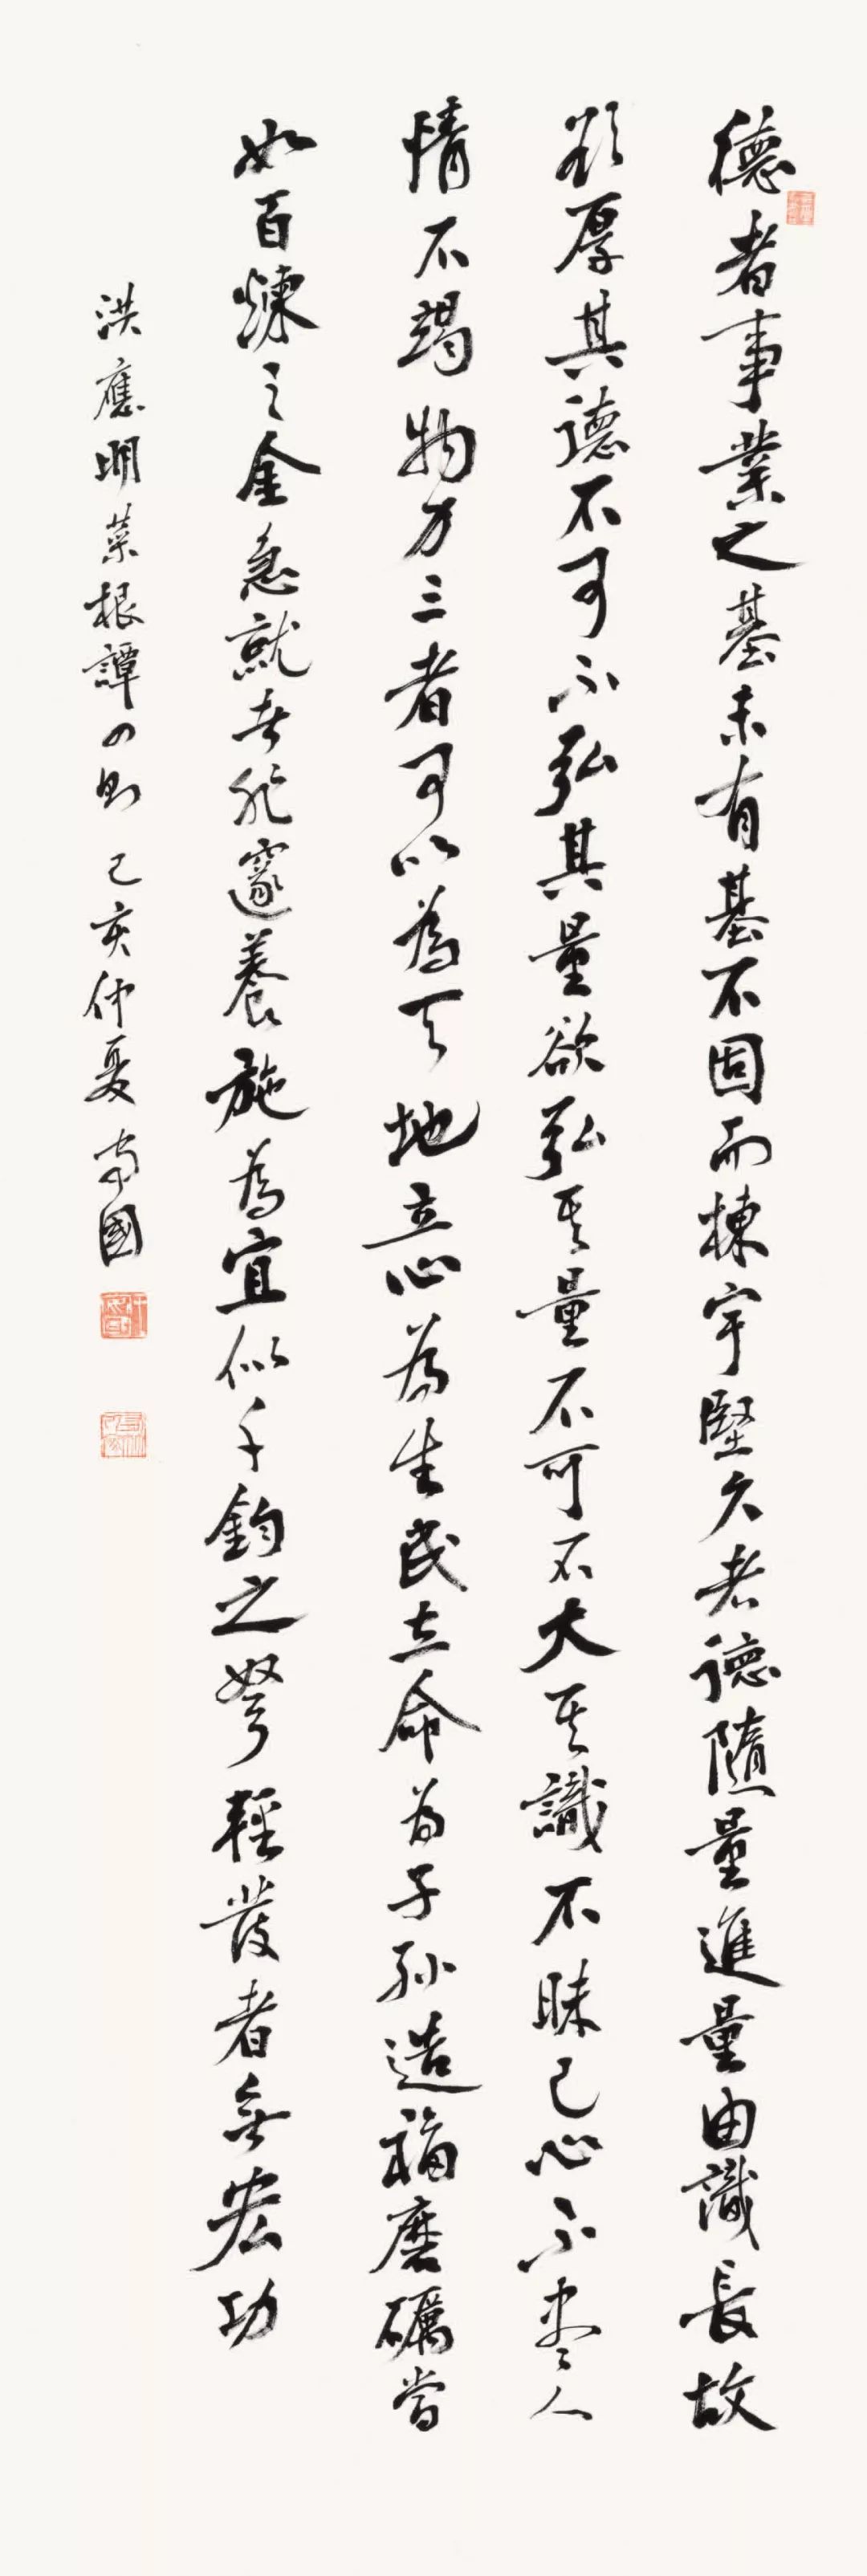 德者事業之基未有基不固而棟宇堅久者德隨量進量由識長故
欲厚其德不可不弘其量欲弘其量不可不大其識不昧己心不盡人
情不竭物力三者可以為天地立心為生民立命為子孫造福磨礪當
如百煉之金急就者非邃養施為宜似千鈞之弩輕發者無宏功
洪應明菜根譚四則 己亥仲夏 國